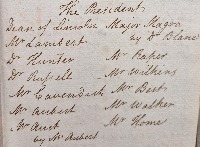 The President
Dean of Lincoln Major Magra
by Dr Blane
Mr Lambert
Dr Hunter Mr Raper
Dr Russell Mr Wilkins
Mr Cavendish Mr Best
Mr Aubert Mr Walker
Mr Mr Home
by Mr Aubert